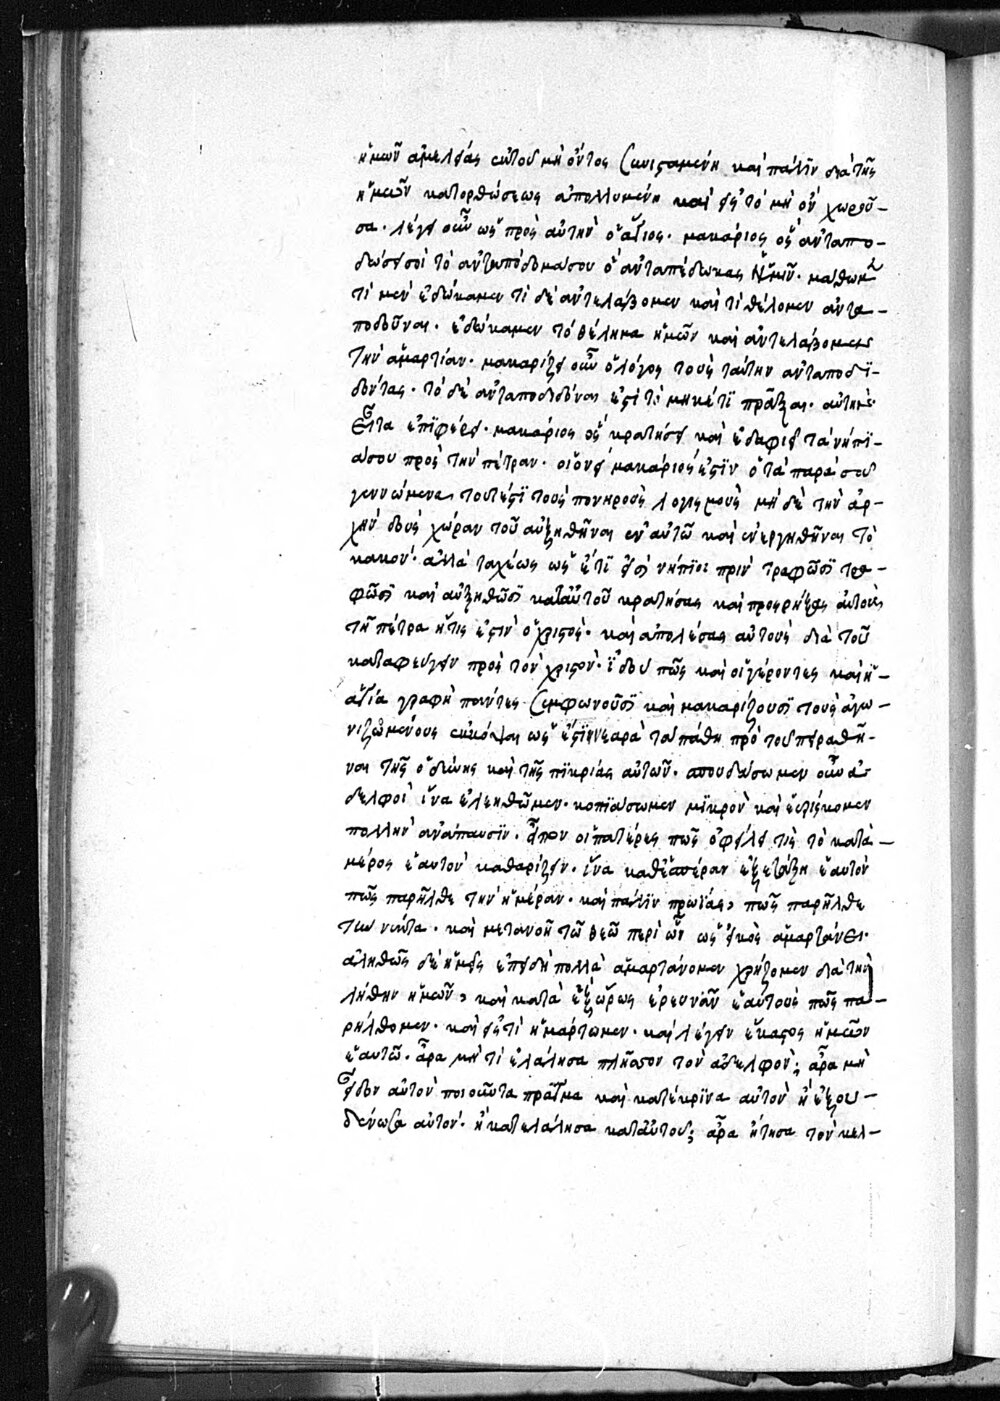 ἡμῶν ἀμελείας ἐκ τοῦ μὴ ὄντος συνισταμένη καὶ πάλιν διὰ τῆς
ἡμῶν κατορθώσεως ἀπολλυμένη καὶ εἰς τὸ μὴ ὂν χωροῦ-
σα. λέγει οὖν ὡς πρὸς αὐτὴν ὁ ἅγιος. μακάριος ὃς ἀνταπο-
δώσει σοι τὸ ἀνταπόδομά σου ὃ ἀνταπέδωκας ἡμῖν. μάθωμεν
τί μὲν ἐδώκαμεν τί δὲ ἀντελάβομεν καὶ τί θέλομεν ἀντα-
ποδοῦναι. ἐδώκαμεν τὸ θέλημα ἡμῶν καὶ ἀντελάβομεν
τὴν ἁμαρτίαν. μακαρίζει οὖν ὁ λόγος τοὺς ταύτην ἀνταποδι-
δόντας. τὸ δὲ ἀνταποδιδόναι ἐστὶ τὸ μηκέτι πρᾶξαι αὐτήν.
Εἶτα ἐπιφέρει. μακάριος ὃς κρατήσει καὶ ἐδαφιεῖ τὰ νήπι-
ά σου πρὸς τὴν πέτραν. οἱονεὶ μακάριός ἐστιν ὁ τὰ παρὰ σοῦ
γεννώμενα τουτέστι τοὺς πονηροὺς λογισμοὺς μὴ δὲ τὴν ἀρ-
χὴν δοὺς χώραν τοῦ αὐξηθῆναι ἐν αὐτῷ καὶ ἐνεργηθῆναι τὸ
κακόν. ἀλλὰ ταχέως ὡς ἔτι εἰσὶ νήπιοι πρὶν τραφῶσι τρα-
φῶσι καὶ αὐξηθῶσι κατ' αὐτοῦ κρατήσας καὶ προσρήξας αὐτοὺς
τῇ πέτρα ἥτις ἐστὶν ὁ χριστός. καὶ ἀπολέσας αὐτοὺς διὰ τοῦ
καταφεύγειν πρὸς τὸν χριστόν. ἰδοὺ πῶς καὶ οἱ γέροντες καὶ ἡ
ἁγία γραφὴ πάντες συμφωνοῦσι καὶ μακαρίζουσι τοὺς ἀγω-
νιζομένους ἐκκόψαι ὡς ἔστι νεαρὰ τὰ πάθη πρὸ τοῦ πειραθῆ-
ναι τῆς ὀδύνης καὶ τῆς πικρίας αὐτῶν. σπουδάσωμεν οὖν ἀ-
δελφοὶ ἵνα ἐλεηθῶμεν. κοπιάσωμεν μικρὸν καὶ εὑρίσκομεν
πολλὴν ἀνάπαυσιν. εἶπον οἱ πατέρες πῶς ὀφείλει τις τὸ κατὰ
μέρος ἑαυτὸν καθαρίζειν. ἵνα καθ' ἑσπέραν ἐξετάζῃ ἑαυτὸν
πῶς παρῆλθε τὴν ἡμέραν. καὶ πάλιν πρωίας, πῶς παρῆλθε
τὴν νύκτα. καὶ μετανοῇ τῷ θεῷ περὶ ὧν ὡς εἰκὸς ἁμαρτάνει.
ἀληθῶς δὲ ἡμεῖς ἐπειδὴ πολλὰ ἁμαρτάνομεν χρήζομεν διὰ τὴν
λήθην ἡμῶν, καὶ κατὰ ἓξ ὥρας ἐρευνᾶν ἑαυτοὺς πῶς πα-
ρήλθομεν. καὶ εἰς τί ἡμάρτομεν. καὶ λέγειν ἕκαστος ἡμῶν
ἑαυτῷ. ἆρα μή τι ἐλάλησα πλῆσσον τὸν ἀδελφόν; ἆρα μὴ
εἶδον αὐτὸν ποιοῦντα πρᾶγμα καὶ κατέκρινα αὐτὸν ἢ ἐξου-
δένωσα αὐτόν. ἢ κατελάλησα κατ' αὐτοῦ; ἆρα ᾔτησα τὸν κελ-